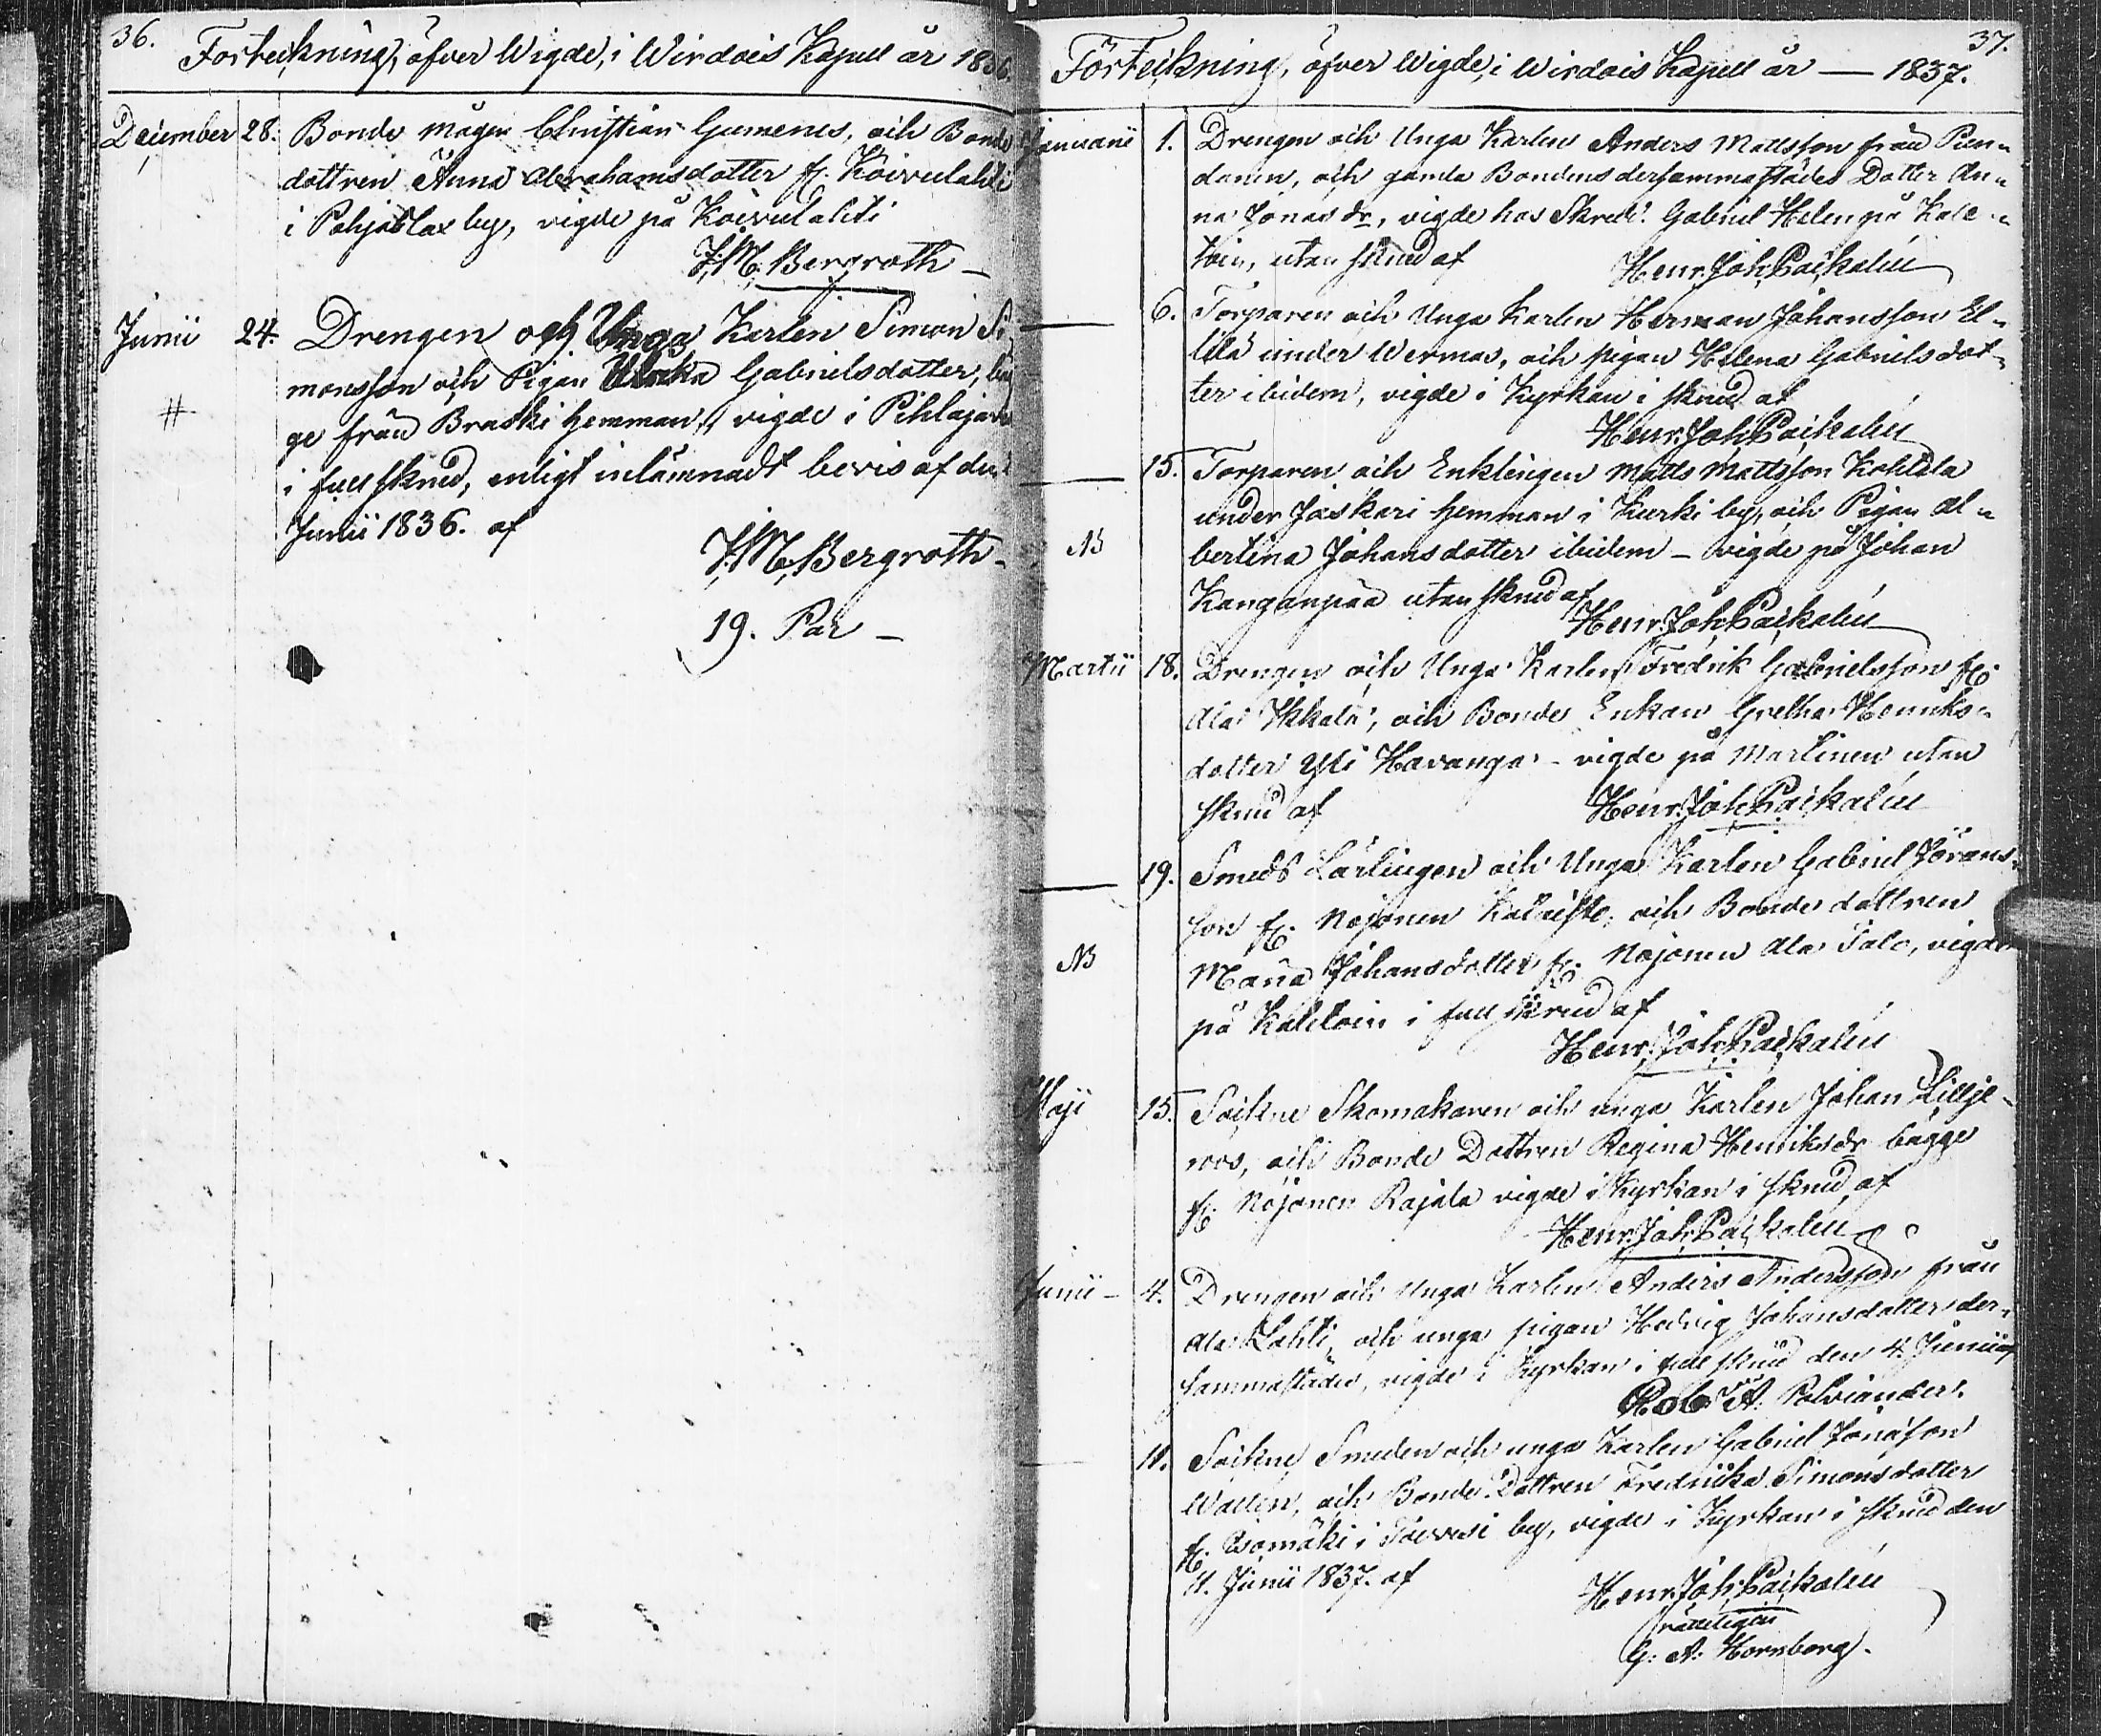 36.
Förteckning, öfver Wigde, i Wirdois Kapell år 1836.
December 28. Bonde mågen Christian Gumenes, och Bonde
dottren Anna Abrahamsdotter fr. Koivulahti
i Pohjoslax by, vigde på Koivulahti
J. M. Bergroth
Junii 24. Drengen och Unga Karlen Simon Si
monsson och Pigan Ulrika Gabrielsdotter, båg
ge från Braski hemman, vigde i Pihlajav
# i full skrud, enligt inlämnadt bevis af den
Junii 1836. af
J. M. Bergroth
19. Par
37.
Förteckning, öfver Wigde, i Wirdois Kapell år — 1837.
Januarii 1. Drengen och Unga Karlen Anders Mattsson från Pun-
danen, och gamla Bondens dersammastädes Dotter An-
na Jonas dr, vigde hos Skredd. Gabriel Helen på Kale-
toin, utan skrud af Henr. Joh. Paickalén
— 6. Torparen och Unga Karlen Herman Johansson El-
lilä under Wermas, och pigan Helena Gabrielsdot-
ter ibidem, vigde i Kyrkan i skrud af
Henr. Joh. Paickalén
— 15. Torparen och Enklingen Matts Mattsson Kohtala
under Jaskari hemman i Kurki by, och Pigan Al-
NB bertina Johansdotter ibidem — vigde på Johan
Kanganpää utan skrud af
Henr. Joh. Paickalén
Martii 18. Drengen och Unga Karlen Fredrik Gabrielsson fr.
Ala Ikkala, och Bonde Enkan Gretha Henriks-
dotter Yli Havanga – vigde på Martinen utan
skrud af Henr. Joh. Paickalén
— 19. Smeds Lärlingen och Unga Karlen Gabriel Jörans-
son fr. Nojonen, och Bonde dottren
NB Maria Johansdotter fr. Nojonen Ala Talo, vigde
på Kaletoin i full skrud af
Henr. Joh. Paickalén
Maji 15. Sockne Skomakaren och unga Karlen Johan Lillje-
roos, och Bonde Dottren Regina Henriksdr bägge
fr. Nojonen Rajala vigde i Kyrkan i skrud af
Henr. Joh. Paickalén
Junii – 4. Drengen och Unga Karlen Anders Andersson från
Ala Lahti, och unga pigan Hedvig Johansdotter der-
sammastädes, vigde i Kyrkan i full skrud den 4. Junii af
Rob. A. Polviander.
— 11. Sockne Smeden och unga Karlen Gabriel Jonasson
Wallin, och Bonde Dottren Fredrika Simonsdotter
fr. Isomäki i Toivesi by, vigde i Kyrkan i skrud den
11. Junii 1837. af Henr. Joh. Paickalén
rätteligen
G: A: Hornborg.